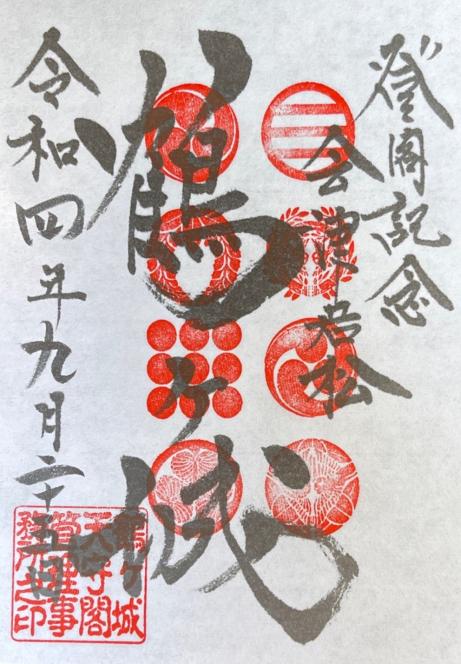 登閣記念
会津若松
鶴ヶ城
令和四年九月二十五日
鶴ヶ城
天守閣
管理事
務所之印